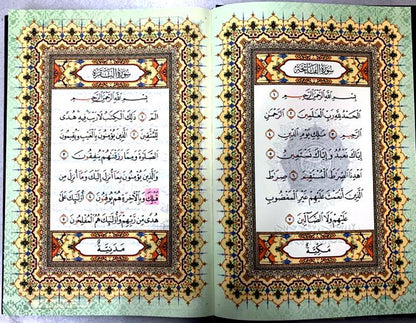 سورة الفاتحة
بسم الله الرحمن الرحيم ١
الحمد لله رب العلمين ٢ الرحمن
الرحيم ٣ ملك يوم الدين ٤
إياك نعبد وإياك نستعين ٥
اهدنا الصرط المستقيم ٦ صرط
الذين أنعمت عليهم غير المغضوب
عليهم ولا الضالين ٧
مكية
سورة البقرة
بسم الله الرحمن الرحيم
الم ١ ذلك الكتب لا ريب فيه هدى
للمتقين ٢ الذين يؤمنون بالغيب ويقيمون
الصلوة ومما رزقنهم ينفقون ٣
والذين يؤمنون بما أنزل إليك وما أنزل من
قبلك وبالآخرة هم يوقنون ٤ أولئك على
هدى من ربهم وأولئك هم المفلحون ٥
مدنية